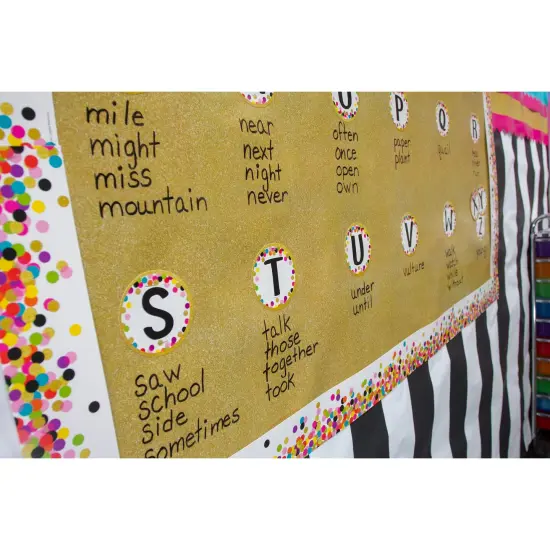 mile
might
miss
mountain
near
next
night
never
O
often
once
open
own
P
paper
plant
Q
quail
R
S
saw
school
side
sometimes
T
talk
those
together
took
U
under
until
V
vulture
W
walk
watch
while
without
X Y
Z